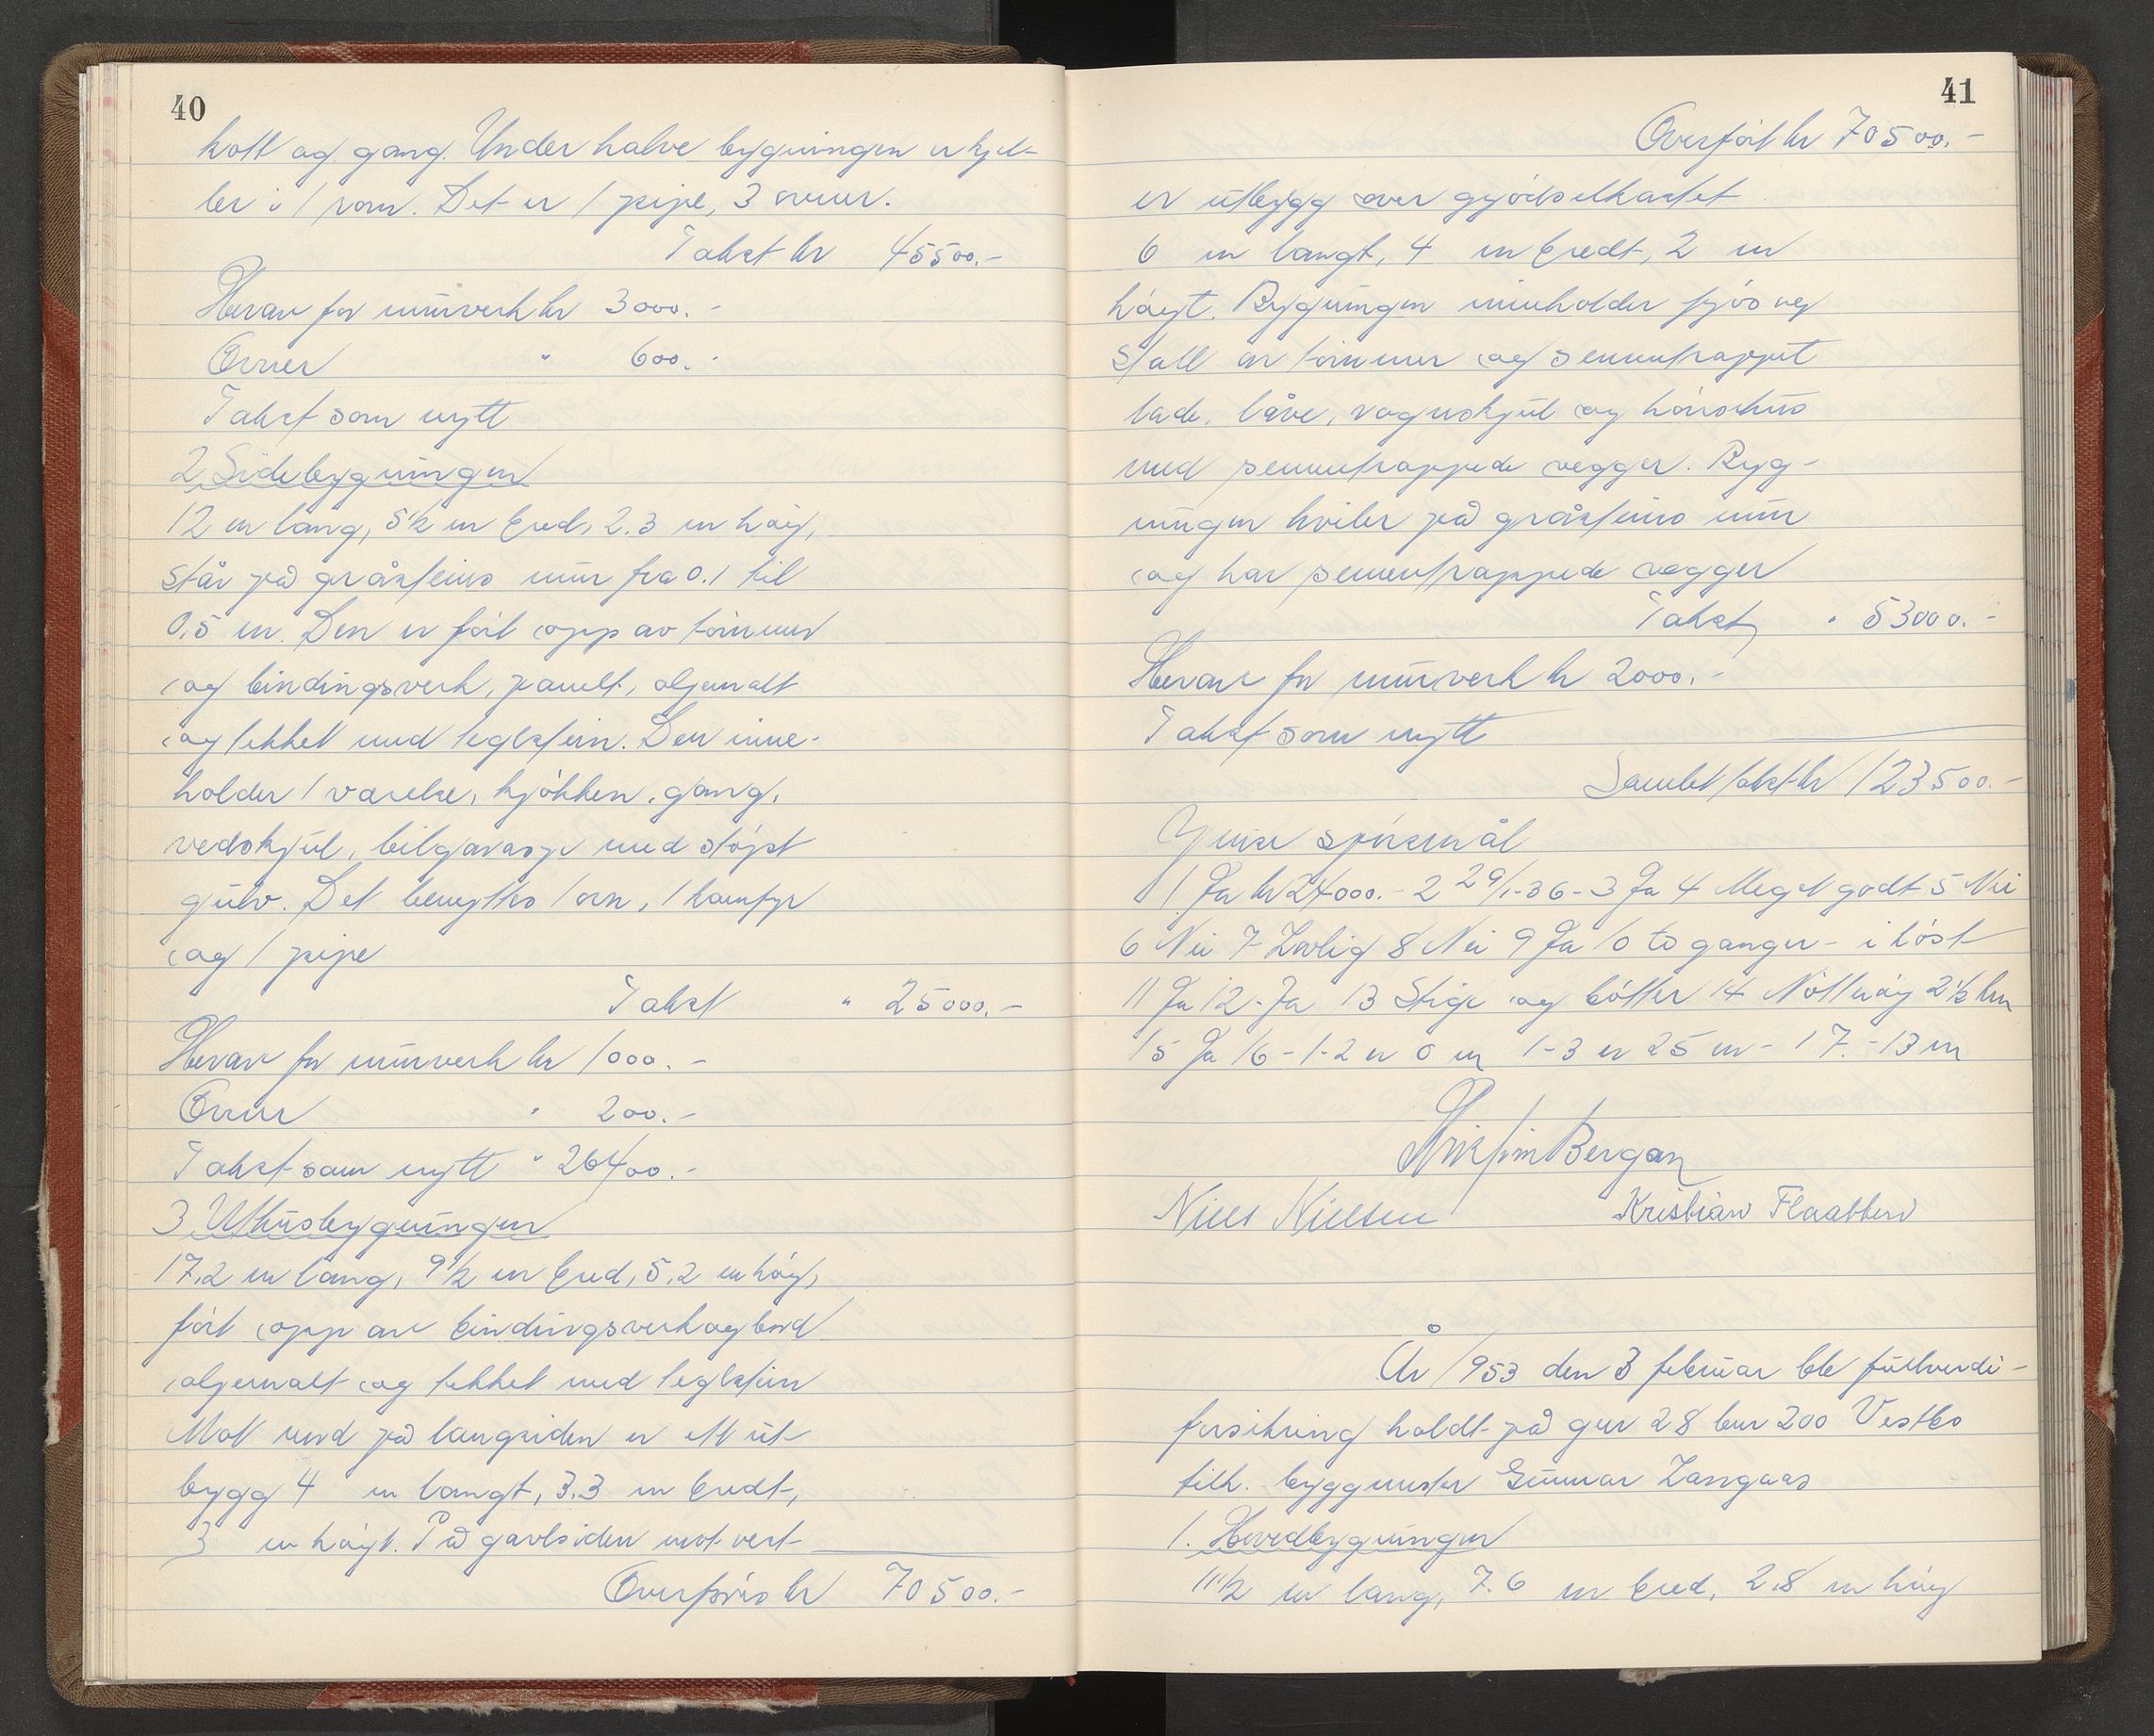 40
kott og gang. Under halve bygningen er kjel-
ler i 1 rom. Det er 1 pipe, 3 ovner.
Takst kr 45500.-
Herav for murverk kr 3000.-
Ovner " 600.-
Takst som nytt
2 Sidebygningen
12 m lang, 5½ m bred, 2.3 m höy,
står på gråsteins mur fra 0.1 til
0,5 m. Den er fört opp av tömmer
og bindingsverk, panelt, oljemalt
og tekket med teglstein. Den inne-
holder 1 varelse, kjökken, gang,
vedskjul, bilgarasje med stöpt
gulv. Det benyttes 1 ovn, 1 komfyr
og 1 pipe
Takst " 25000.-
Herav for murverk kr 1000.-
Ovner " 200.-
Takst som nytt " 26400.-
3 Uthusbygningen
17,2 m lang, 9½ m bred, 5,2 m höy,
fört opp av bindingsverk og bord
oljemalt og tekket med teglstein
Mot nord på langsiden er ett ut-
bygg 4 m langt, 3.3 m bredt,
3 m höyt. På gavlsiden mot vest
Overföres kr 70500.-
41
Overfört kr 70500.-
er utbygg over gjödselkastet
6 m langt, 4 m bredt, 2 m
höyt. Bygningen inneholder fjös og
stall av tömmer og sementrappet
lade, låve, vognskjul og hönsehus
med sementrappede vegger. Byg-
ningen hviler på gråsteins mur
og har sementrappede vegger
Takst " 53000.-
Herav for murverk kr 2000.-
Takst som nytt
Samlet takst kr 123500.-
Ymse spörsmål
1 Ja kr 24000.- 2 29/1-36- 3 Ja 4 Meget godt 5 Nei
6 Nei 7 Lovlig 8 Nei 9 Ja 10 to ganger - i höst
11 Ja 12 - Ja 13 Stige og bötter 14 Nötteröy 2½ km
15 Ja 16 - 1-2 er 0 m 1-3 er 25 m - 17. - 13 m
Kristin Bergan
Niels Nielsen Kristian Flaatten
År 1953 den 3 februar ble fullverdi-
forsikring holdt på gnr 28 bnr 200 Vestbo
tilh. byggmester Gunnar Langaas
1. Hovedbygningen
11½ m lang, 7.6 m bred, 2.8 m höy